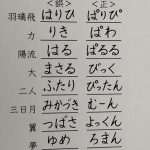 <誤> <正>
羽璃飛 はりひ ぱりぴ
力 りき ぱわ
陽流 はる ぱるる
大 まさる びっく
二人 ふたり ぴったん
三日月 みかづき むーん
翼 つばさ よっくん
夢 ゆめ ろまん